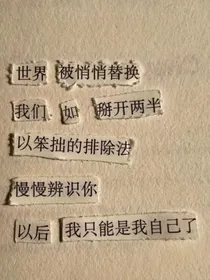 世界 被悄悄替换
我们 如 掰开两半
以笨拙的排除法
慢慢辨识你
以后 我只能是我自己了